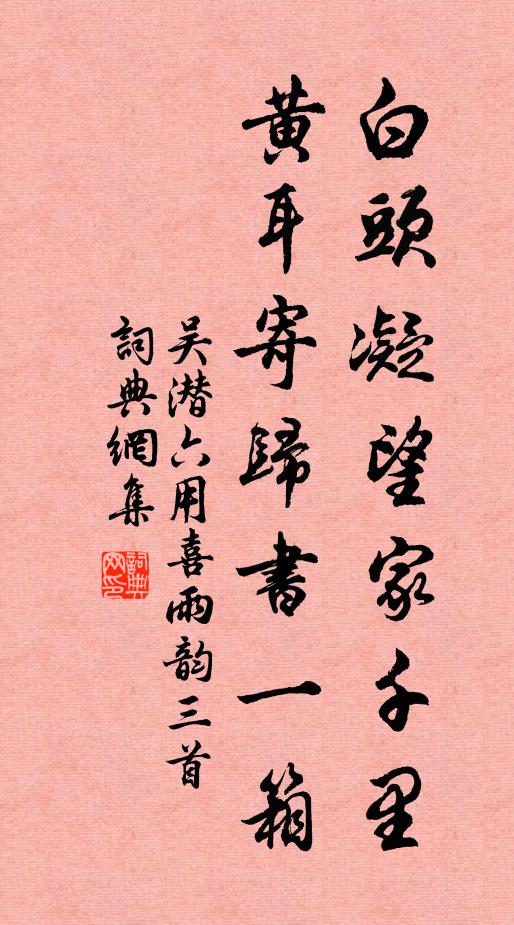 白頭凝望家千里
黃耳寄歸書一箱
吴潜六用喜雨韵三首
詞典網集
詞典网印